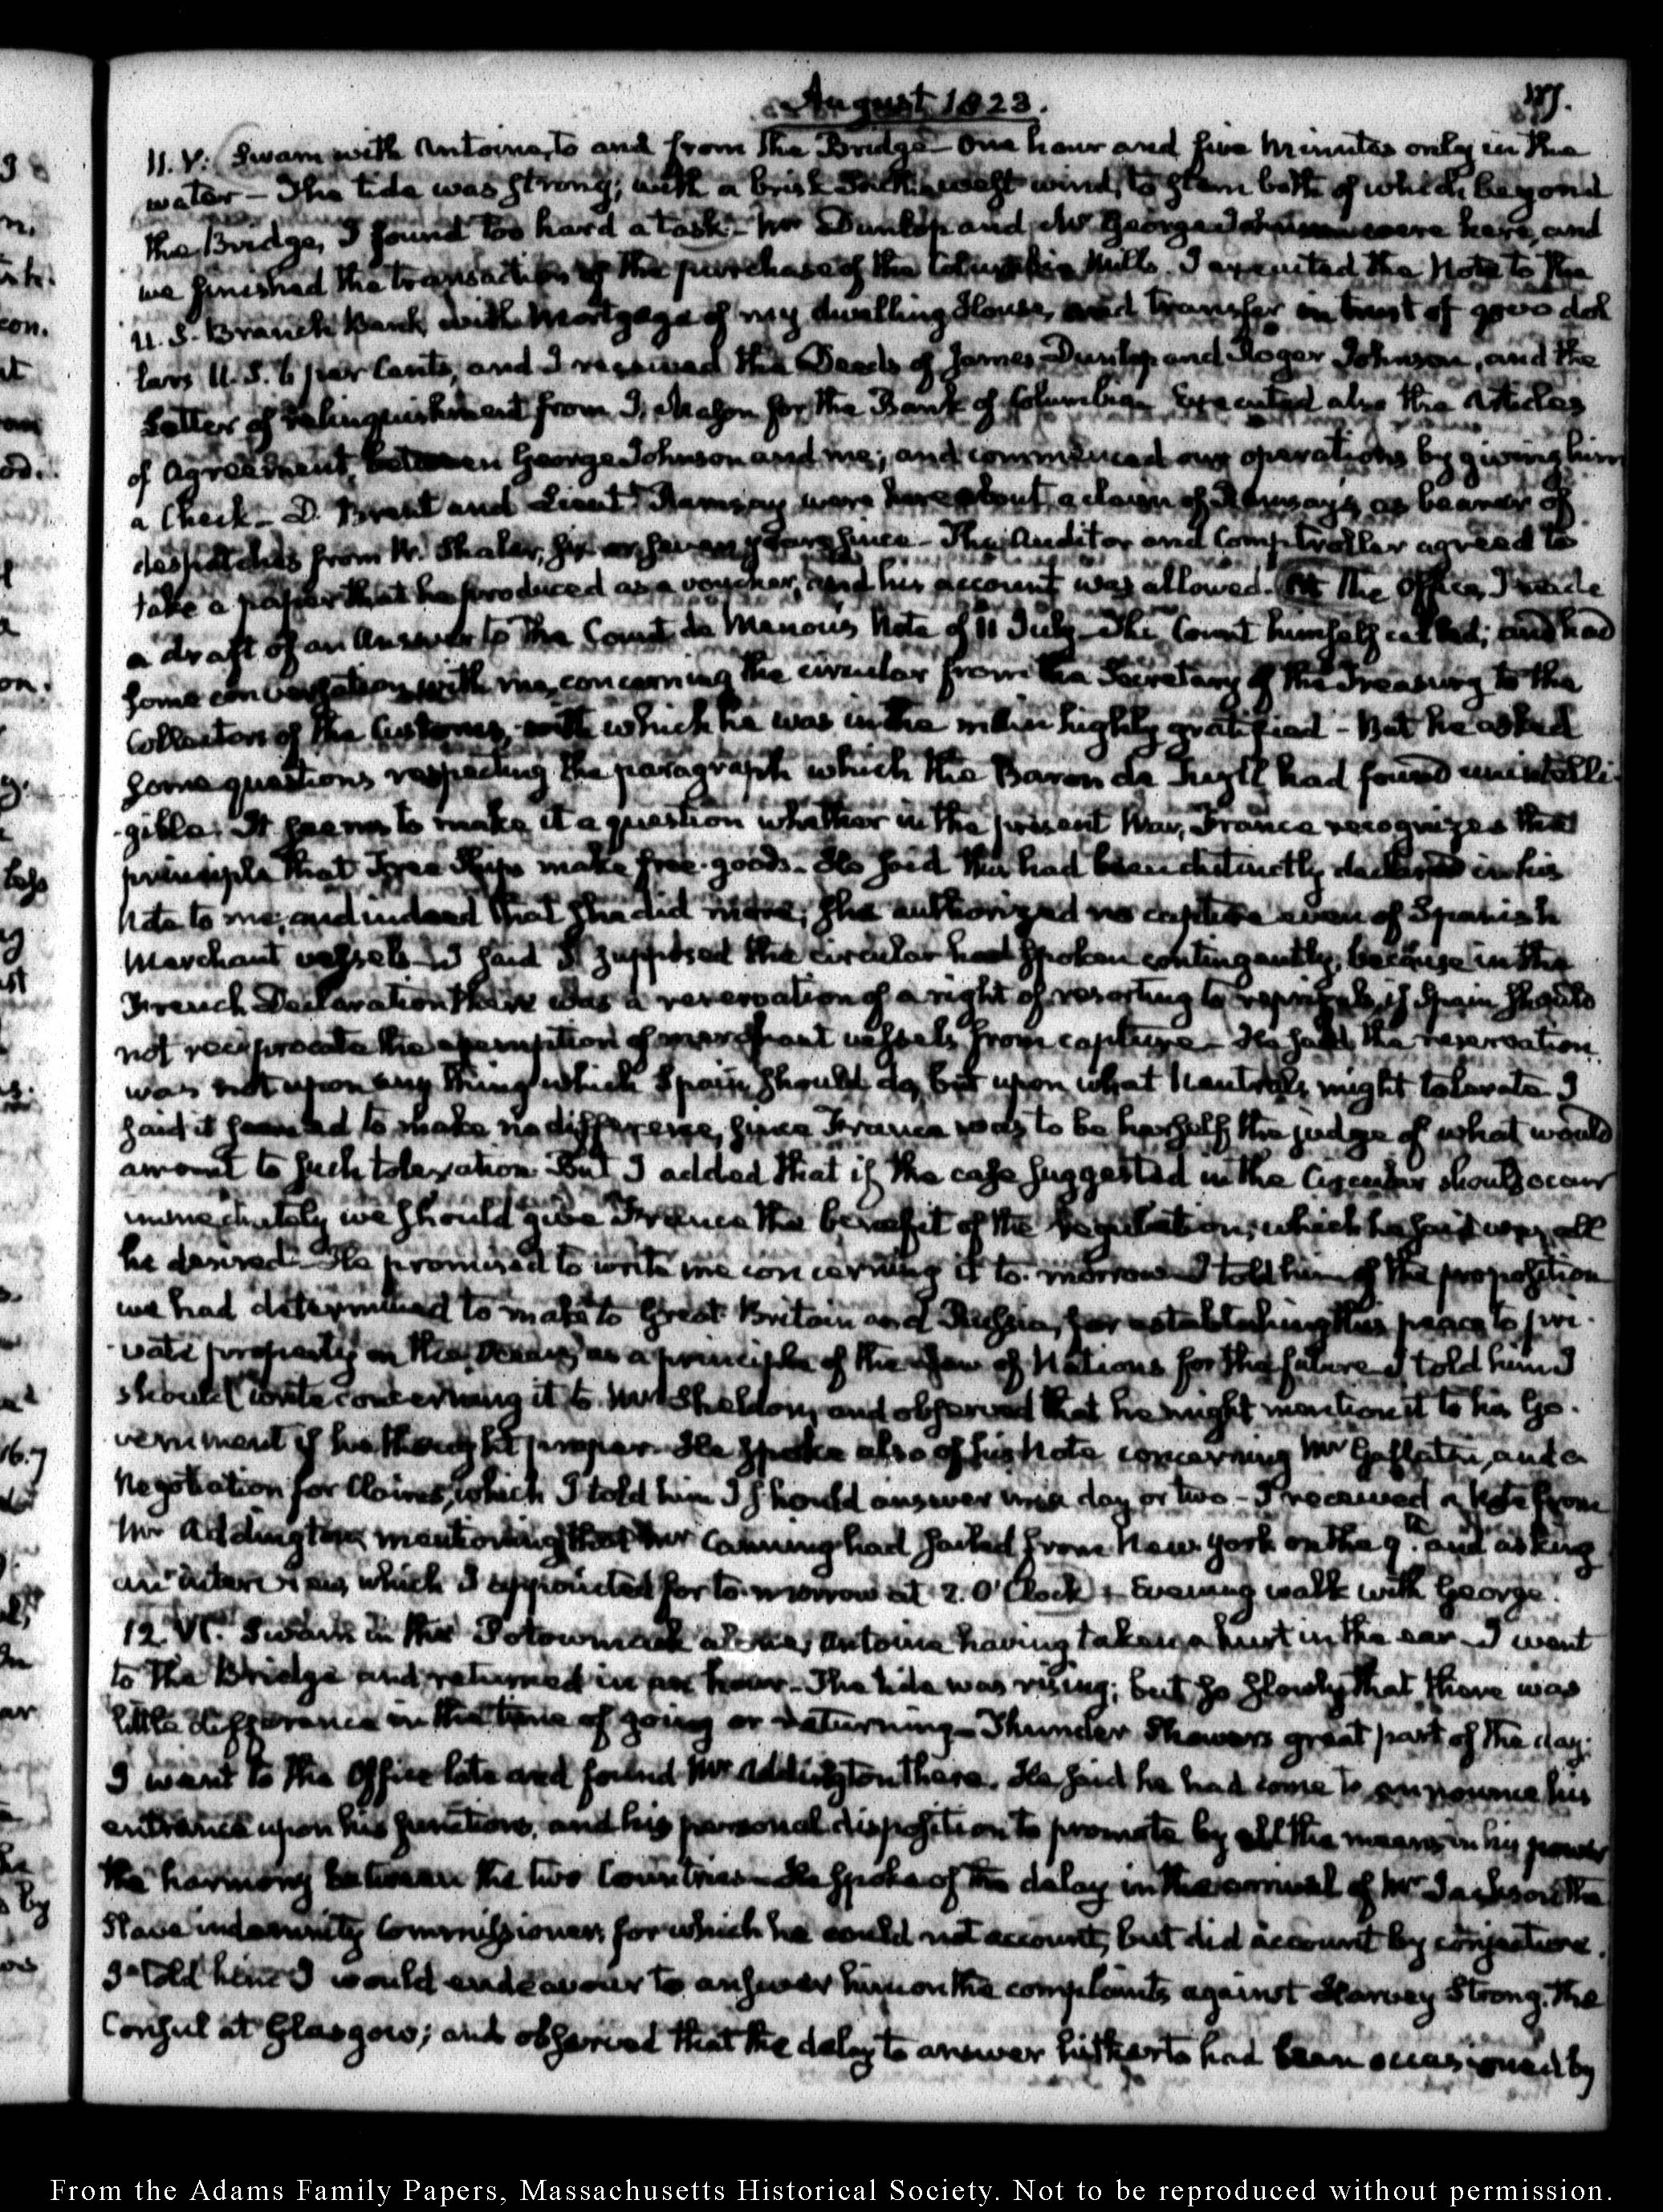 August 1823.
11. V: Swam with Antoine, to and from the Bridge — One hour and five Minutes only in the
water — The tide was strong; with a brisk South-west wind, to stem both of which beyond
the Bridge, I found too hard a task — Mr Dunlop and Mr George Johnson were here, and
we finished the transaction of the purchase of the Columbian Mills. I executed the Note to the
U.S. Branch Bank, with Mortgage of my dwelling House, and transfer in trust of 9000 dol
lars U.S. 6 per Cents, and I received the Deeds of James Dunlop and Roger Johnson, and the
Letter of relinquishment from J. Mason for the Bank of Columbia. Executed also the Articles
of Agreement, between George Johnson and me; and commenced our operations by giving him
a Check — D. Brent and Lieut. Ramsay were here about a claim of Ramsay's as bearer of
despatches from W. Shaler, six or seven years since — The Auditor and Comptroller agreed to
take a paper that he produced as a voucher, and his account was allowed. At the Office, I made
a draft of an Answer to the Count de Menou's Note of 11 July — The Count himself called; and had
some conversation with me, concerning the circular from the Secretary of the Treasury to the
Collectors of the Customs, with which he was in the main highly gratified — But he asked
some questions respecting the paragraph which the Baron de Tuyll had found unintelli-
-gible. It seems to make it a question whether in the present War, France recognizes the
principle that Free Ships make free-goods — He said this had been distinctly declared in his
Note to me, and indeed that she did more; she authorized no capture even of Spanish
Merchant vessels — I said I supposed the circular had spoken contingently, because in the
French Declaration there was a reservation of a right of resorting to reprisals, if Spain should
not reciprocate the exemption of merchant vessels from capture — He said the reservation
was not upon any thing which Spain should do, but upon what Neutrals might tolerate. I
said it seemed to make no difference, since France was to be herself the judge of what would
amount to such toleration. But I added that if the case suggested in the Circular should occur
immediately we should give France the benefit of the regulation; which he said was all
he desired — He promised to write me concerning it to-morrow — I told him of the proposition
we had determined to make to Great-Britain and Russia, for establishing this peace to pri-
-vate property on the Ocean, as a principle of the Law of Nations for the future — I told him I
should write concerning it to Mr Sheldon, and observed that he might mention it to his Go-
vernment if he thought proper — He spoke also of his Note concerning Mr Gallatin, and a
Negotiation for Claims, which I told him I should answer in a day or two — I received a Note from
Mr Addington, mentioning that Mr Canning had sailed from New-York on the 9th. and asking
an interview, which I appointed for to-morrow at 2. O'Clock — Evening walk with George.
12. VI. Swam in the Potowmack alone, Antoine having taken a hurt in the ear — I went
to the Bridge and returned in an hour — The tide was rising; but so slowly that there was
little difference in the time of going or returning — Thunder Showers great part of the day.
I went to the Office late and found Mr Addington there. He said he had come to announce his
entrance upon his functions, and his personal disposition to promote by all the means in his power
the harmony between the two Countries — He spoke of the delay in the arrival of Mr Jackson the
Slave indemnity Commissioner, for which he could not account, but did account by conjecture.
I told him I would endeavour to answer him on the complaints against Harvey Strong, the
Consul at Glasgow; and observed that the delay to answer hitherto had been occasioned by
From the Adams Family Papers, Massachusetts Historical Society. Not to be reproduced without permission.